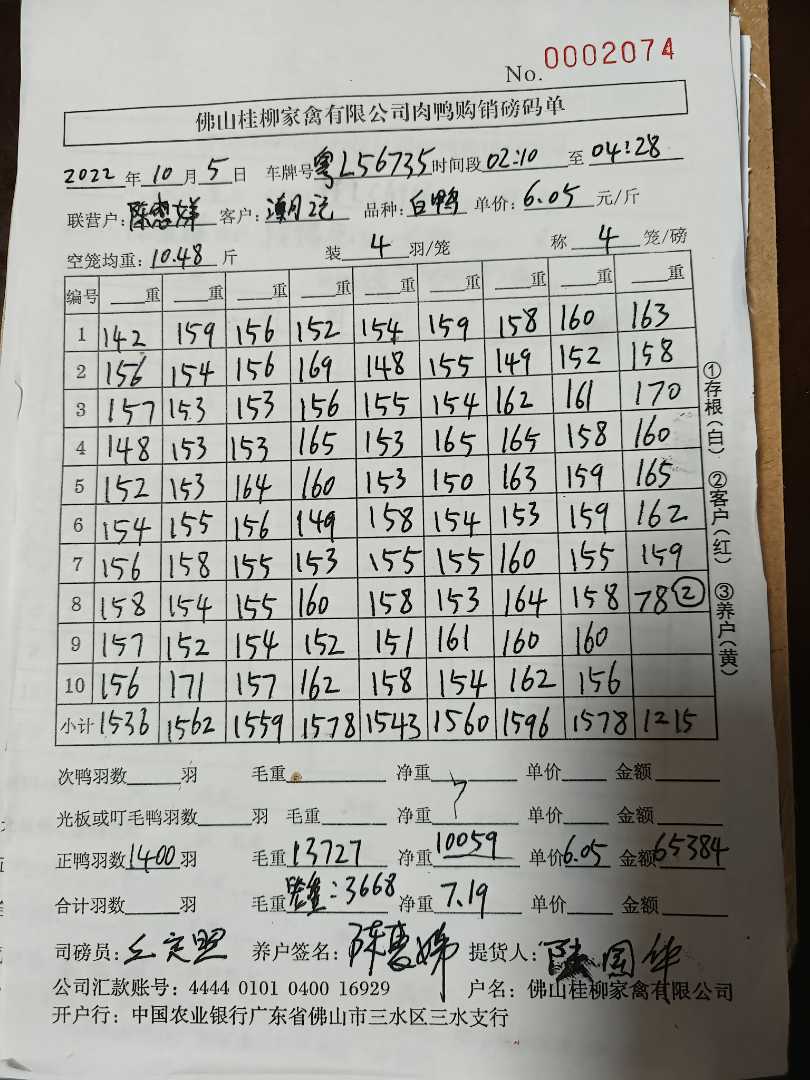 No. 0002074
佛山桂柳家禽有限公司肉鸭购销磅码单
2022年10月5日 车牌号粤L56735时间段02:10至04:28
联营户: 客户: 品种:白鸭 单价:6.05元/斤
空笼均重:10.48斤 装4羽/笼 称4笼/磅
编号 重 重 重 重 重 重 重 重 重
1 142 159 156 152 154 159 158 160 163
2 156 154 156 169 148 155 149 152 158
3 157 153 153 156 155 154 162 161 170
4 148 153 153 165 153 165 165 158 160
5 152 153 164 160 153 150 163 159 165
6 154 155 156 149 158 154 153 159 162
7 156 158 155 153 155 155 160 155 159
8 158 154 155 160 158 153 164 158 78②
9 157 152 154 152 151 161 160 160
10 156 171 157 162 158 154 162 156
小计 1536 1562 1559 1578 1543 1560 1596 1578 1215
次鸭羽数 羽 毛重 净重 单价 金额
光板或叮毛鸭羽数 羽 毛重 净重 单价 金额
正鸭羽数1400羽 毛重13727 净重10059 单价6.05 金额65384
合计羽数 羽 毛重笼重:3668 净重7.19 单价 金额
司磅员: 养户签名: 提货人:
公司汇款账号:4444 0101 0400 16929 户名:佛山桂柳家禽有限公司
开户行:中国农业银行广东省佛山市三水区三水支行
①存根(白) ②客户(红) ③养户(黄)